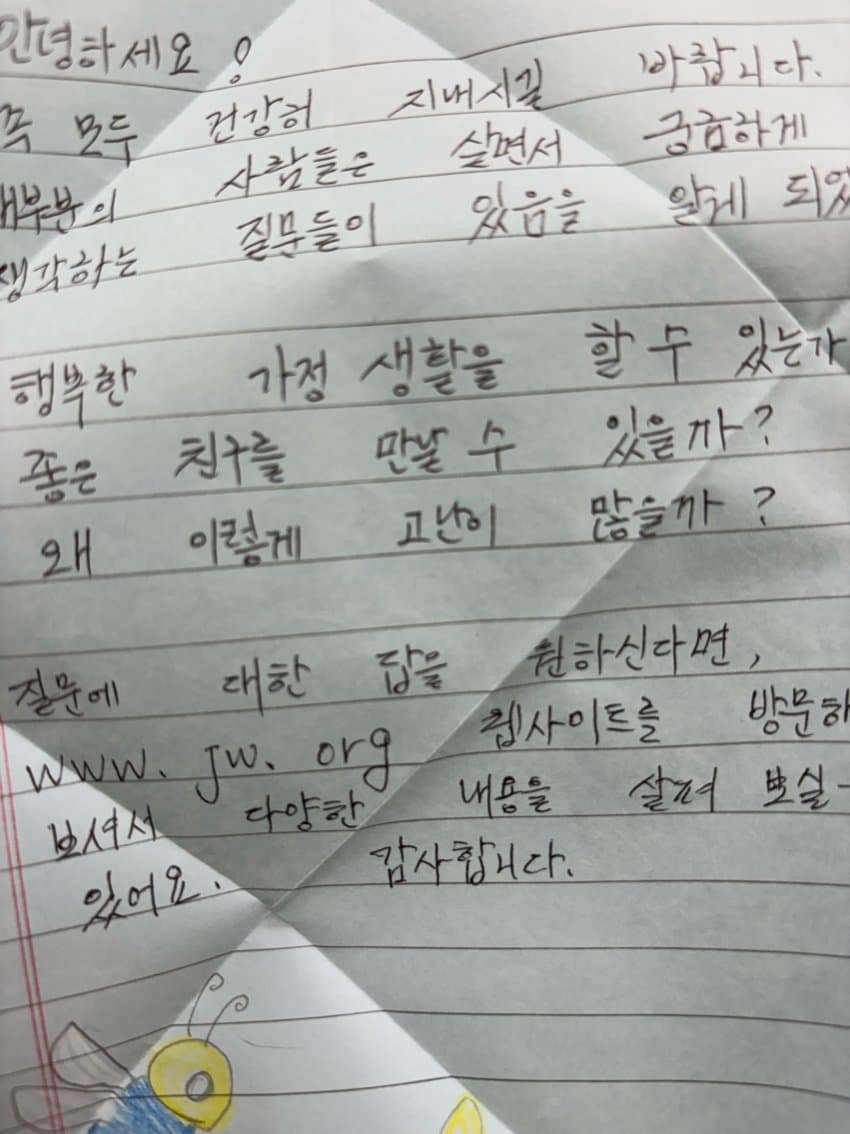 안녕하세요!
모두 건강히 지내시길 바랍니다.
사람들은 살면서 궁금하게
생각하는 질문들이 있음을 알게
행복한 가정 생활을 할 수 있는가
좋은 친구를 만날 수 있을까?
왜 이렇게 고난이 많을까?
질문에 대한 답을 원하신다면,
www.jw.org 웹사이트를 방문하
보셔서 다양한 내용을 살펴 보실
있어요. 감사합니다.